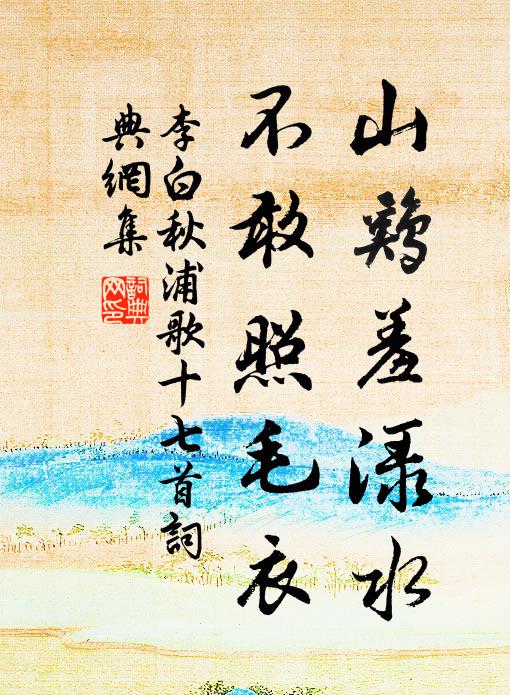 山鷄羞渌水
不敢照毛衣
李白秋浦歌十七首詞
典網集
詞典
网印